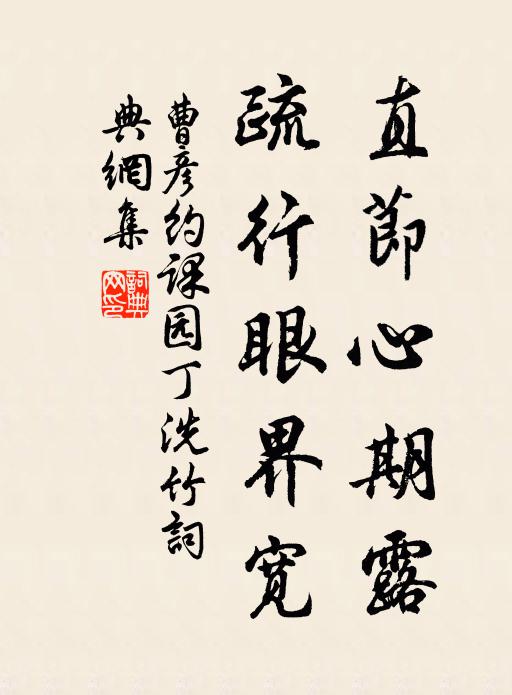 直節心期露
疏行眼界宽
曹彦约課园丁洗竹詞
典網集
詞典
网印